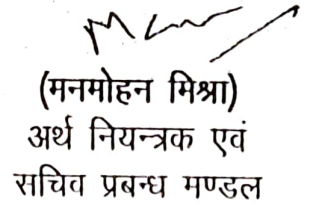 (मनमोहन मिश्रा)
अर्थ नियन्त्रक एवं
सचिव प्रबन्ध मण्डल